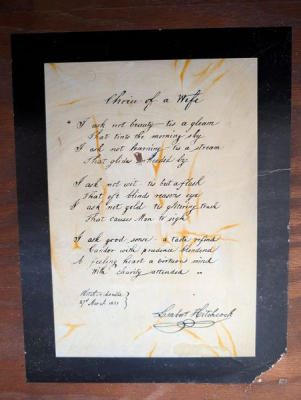 Choice of a Wife
"I ask not beauty – tis a gleam
That tints the morning sky
I ask not learning – tis a stream
That glides unheeded by
I ask not wit – tis but a flash
That oft blinds reasons eye
I ask not gold – tis glittering trash
That causes Man to sigh
I ask good sense – a taste refind
Candor with prudence blended
A feeling heart a virtuous mind
With charity attended "
27th March 1821
Lambert Hitchcock